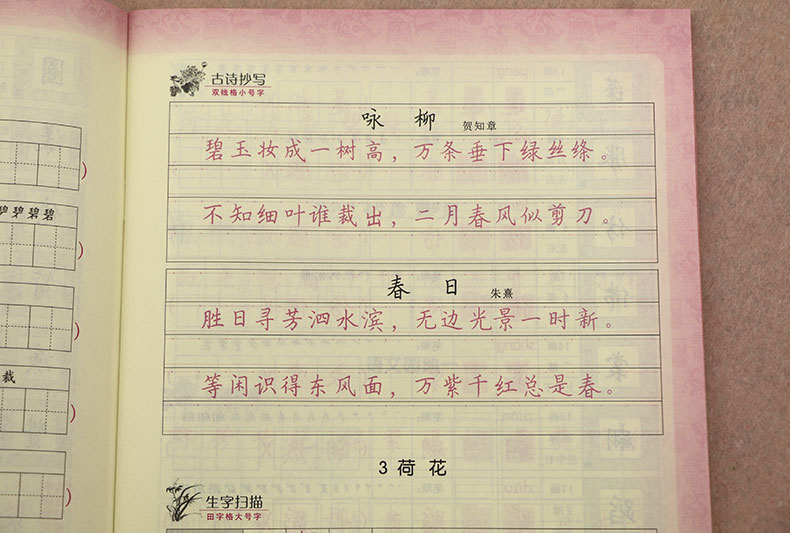 古诗抄写
双线格小号字
咏 柳 贺知章
碧玉妆成一树高，万条垂下绿丝绦。
不知细叶谁裁出，二月春风似剪刀。
春 日 朱熹
胜日寻芳泗水滨，无边光景一时新。
等闲识得东风面，万紫千红总是春。
3 荷 花
生字扫描
田字格大号字
碧 碧 碧
裁